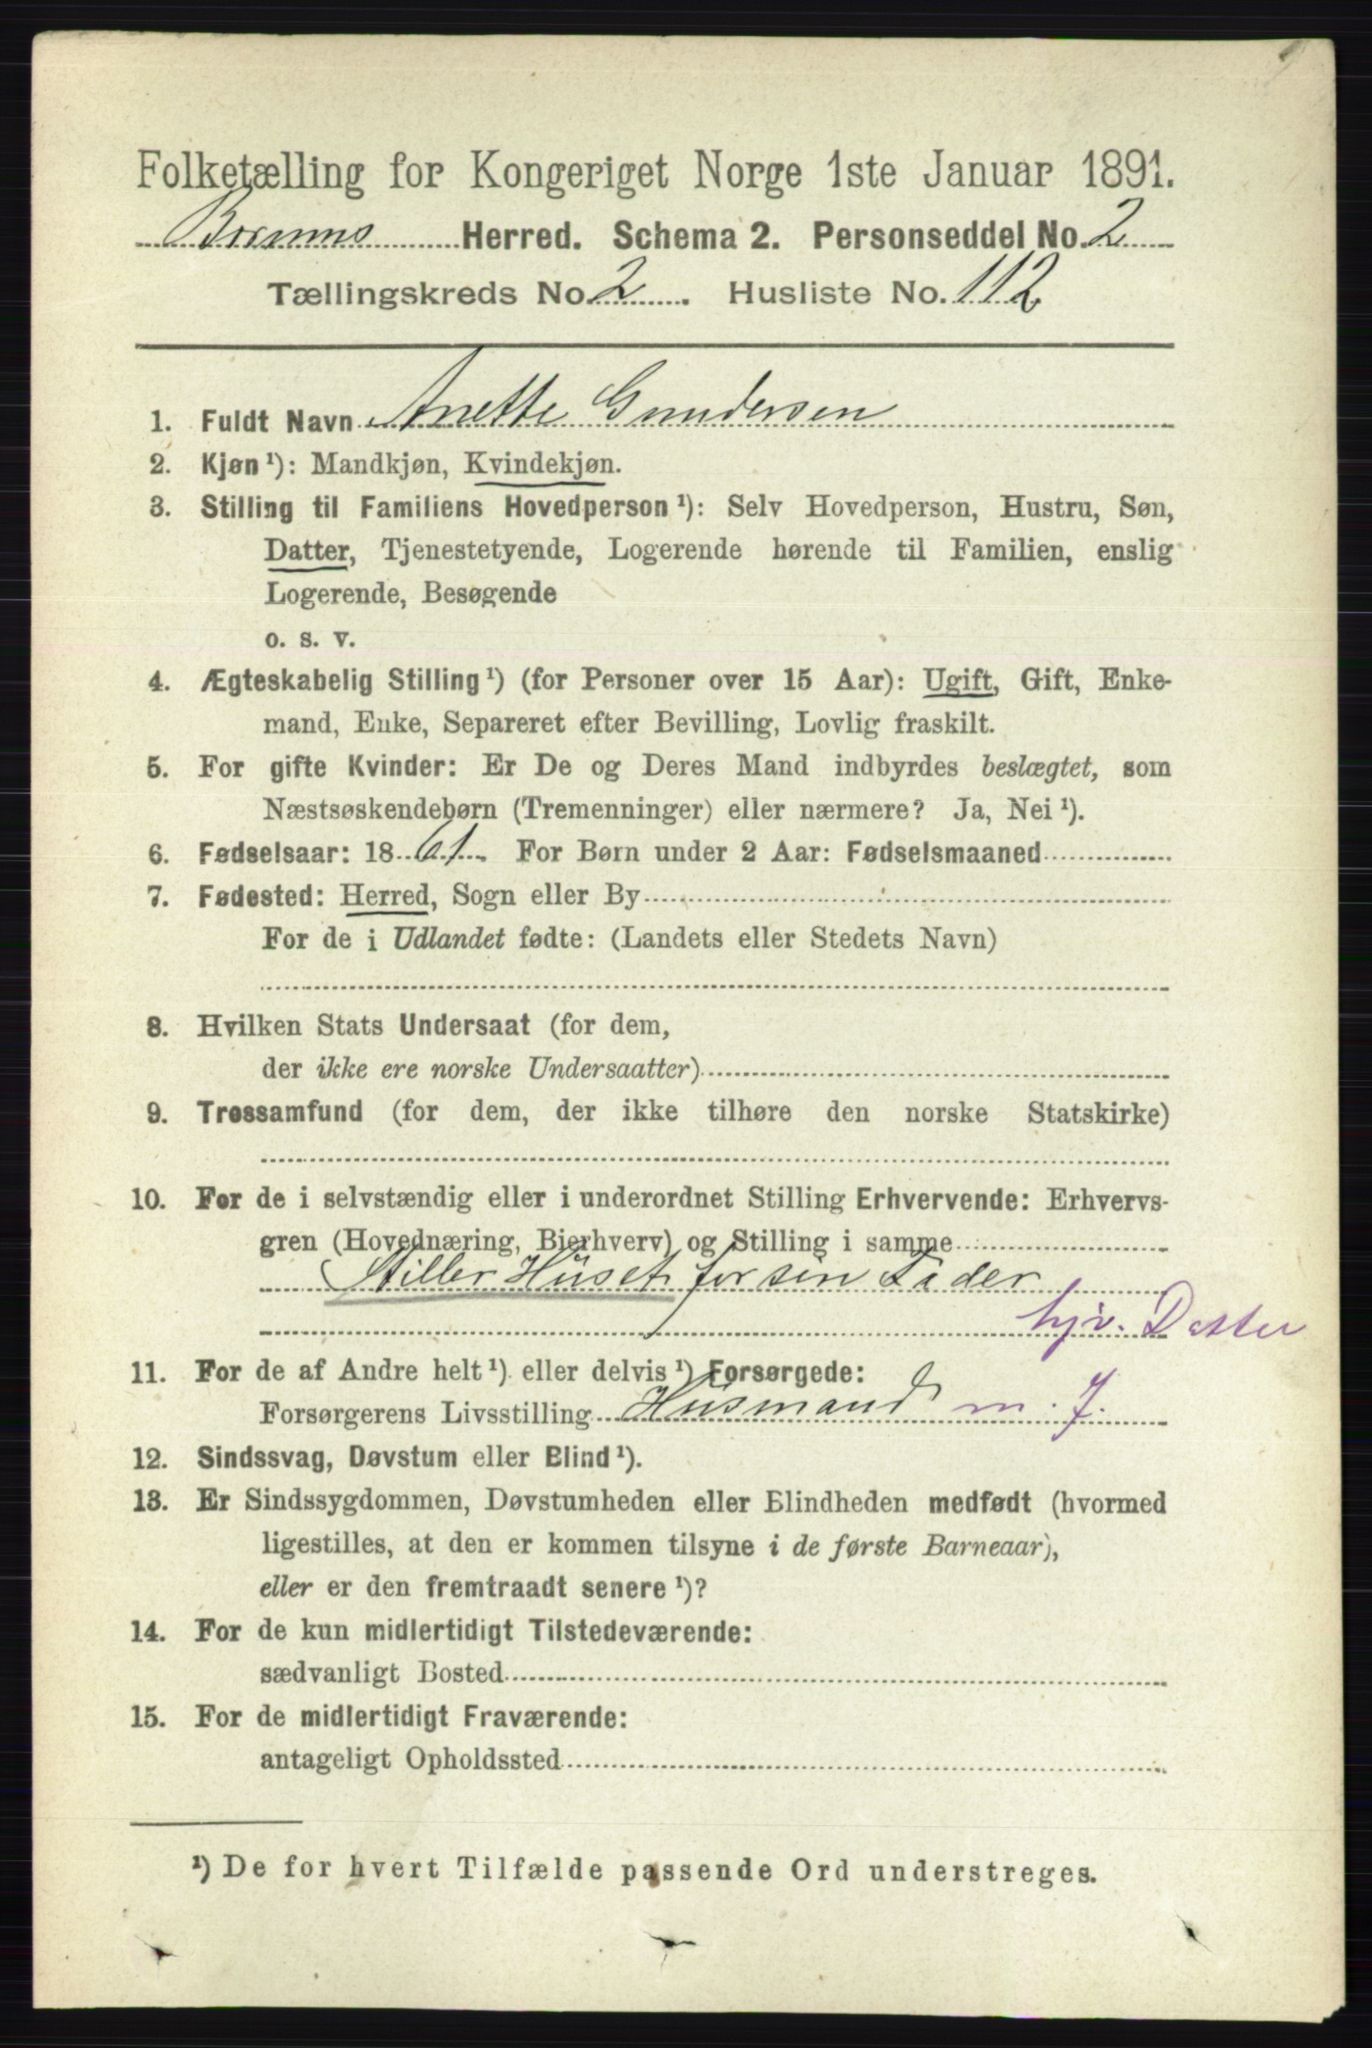 Folketælling for Kongeriget Norge 1ste Januar 1891.
Herred. Schema 2. Personseddel No. 2
Tællingskreds No. 2. Husliste No. 112
1. Fuldt Navn Anette Gundersen
2. Kjøn ¹): Mandkjøn, Kvindekjøn.
3. Stilling til Familiens Hovedperson ¹): Selv Hovedperson, Hustru, Søn,
Datter, Tjenestetyende, Logerende hørende til Familien, enslig
Logerende, Besøgende
o. s. v.
4. Ægteskabelig Stilling ¹) (for Personer over 15 Aar): Ugift, Gift, Enke-
mand, Enke, Separeret efter Bevilling, Lovlig fraskilt.
5. For gifte Kvinder: Er De og Deres Mand indbyrdes beslægtet, som
Næstsøskendebørn (Tremenninger) eller nærmere? Ja, Nei ¹).
6. Fødselsaar: 1861. For Børn under 2 Aar: Fødselsmaaned
7. Fødested: Herred, Sogn eller By
For de i Udlandet fødte: (Landets eller Stedets Navn)
8. Hvilken Stats Undersaat (for dem,
der ikke ere norske Undersaatter)
9. Trossamfund (for dem, der ikke tilhøre den norske Statskirke)
10. For de i selvstændig eller i underordnet Stilling Erhvervende: Erhvervs-
gren (Hovednæring, Bierhverv) og Stilling i samme
Stiller Huset for sin Fader
hjv. Datter
11. For de af Andre helt ¹) eller delvis ¹) Forsørgede:
Forsørgerens Livsstilling Husmand m. J.
12. Sindssvag, Døvstum eller Blind ¹).
13. Er Sindssygdommen, Døvstumheden eller Blindheden medfødt (hvormed
ligestilles, at den er kommen tilsyne i de første Barneaar),
eller er den fremtraadt senere ¹)?
14. For de kun midlertidigt Tilstedeværende:
sædvanligt Bosted
15. For de midlertidigt Fraværende:
antageligt Opholdssted
¹) De for hvert Tilfælde passende Ord understreges.